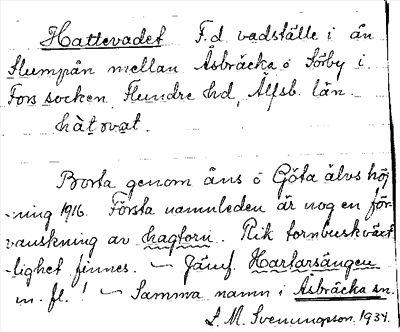 Hattevadet F.d. vadställe i ån
Slumpån mellan Åsbräcka o Sörby i
Fors socken Flundre hd, Älfsb. län.
hàt,ro,vat.
Borta genom åns o Göta älvs höj-
-ning 1916. Första namnleden är nog en för-
vanskning av hagtorn. Rik tornbuskväxt
-lighet finnes. — Jämf. Hartarsängen
m. fl.! — Samma namn i Åsbräcka sn.
L. M. Svenungsson. 1934.